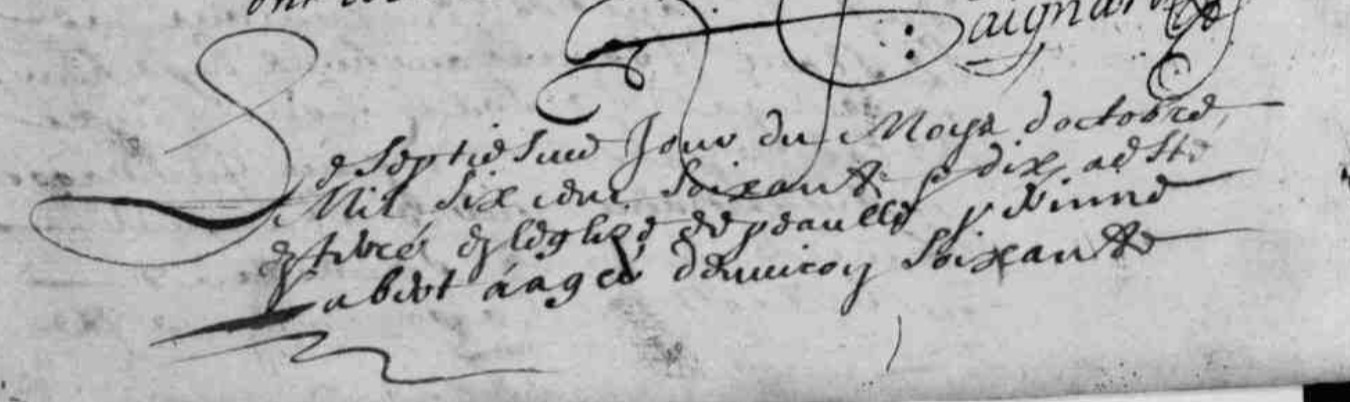 ont
Saignard
Le septiesme Jour du Moys doctobre
Mil six cent soixante et dix a esté
enterré en leglise de peaulle perinne
Labbot aagée denviron soixante